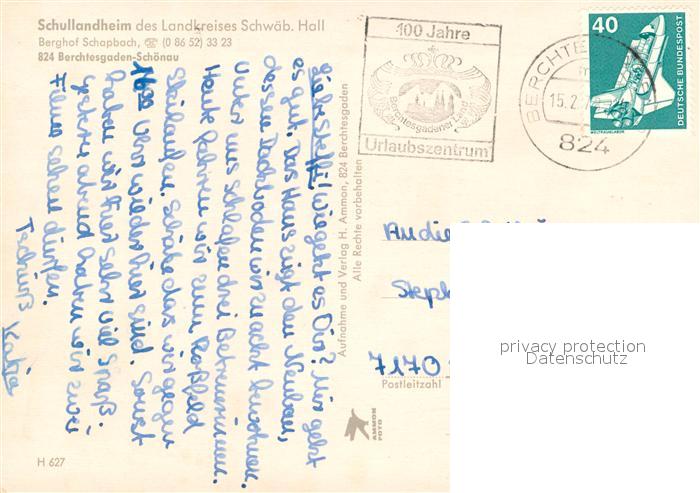 Schullandheim des Landkreises Schwäb. Hall
Berghof Schapbach, ☎ (0 86 52) 33 23
824 Berchtesgaden-Schönau
Liebe Steffi! Wie geht es Dir? Mir geht
es gut. Das Haus zeigt den Neubau,
dessen Dachboden wir zu acht bewohnen.
Unter uns schlafen drei Betreuerinnen.
Heut fahren wir zum Roßfeld
Skilaufen. Schätze das wir gegen
16 00 Uhr wieder hier sind. Sonst
haben wir hier sehr viel Spaß.
Gestern abend haben wir zwei
Filme sehen dürfen.
Tschüß Katja
H 627
Aufnahme und Verlag H. Ammon, 824 Berchtesgaden
Alle Rechte vorbehalten
AMMON
FOTO
100 Jahre
Berchtesgadener Land
Urlaubszentrum
BERCHTE
15.2.7
824
40
DEUTSCHE BUNDESPOST
WELTRAUMLABOR
An die
Steph
7170
Postleitzahl
privacy protection
Datenschutz